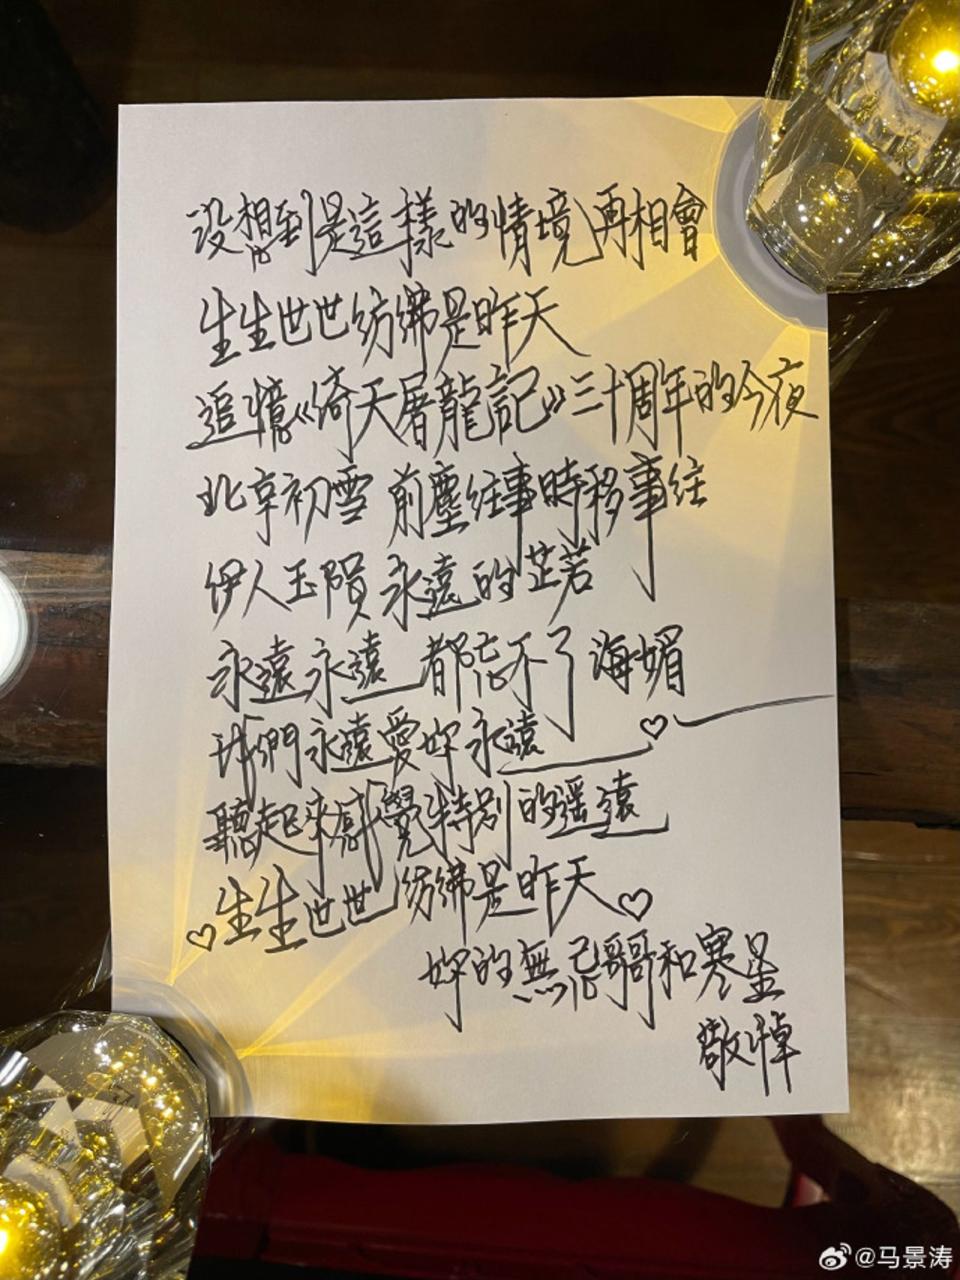 没想到是這樣的情境再相會
生生世世彷彿是昨天
追憶《倚天屠龍記》三十周年的今夜
北京初雪 前塵往事時移事往
伊人玉隕 永遠的芷若
永遠永遠 都忘不了 海媚
我們永遠愛妳 永遠
聽起來感覺特別的遥遠
生生世世 彷彿是昨天
妳的無忌哥哥和寒星
敬悼
@马景涛